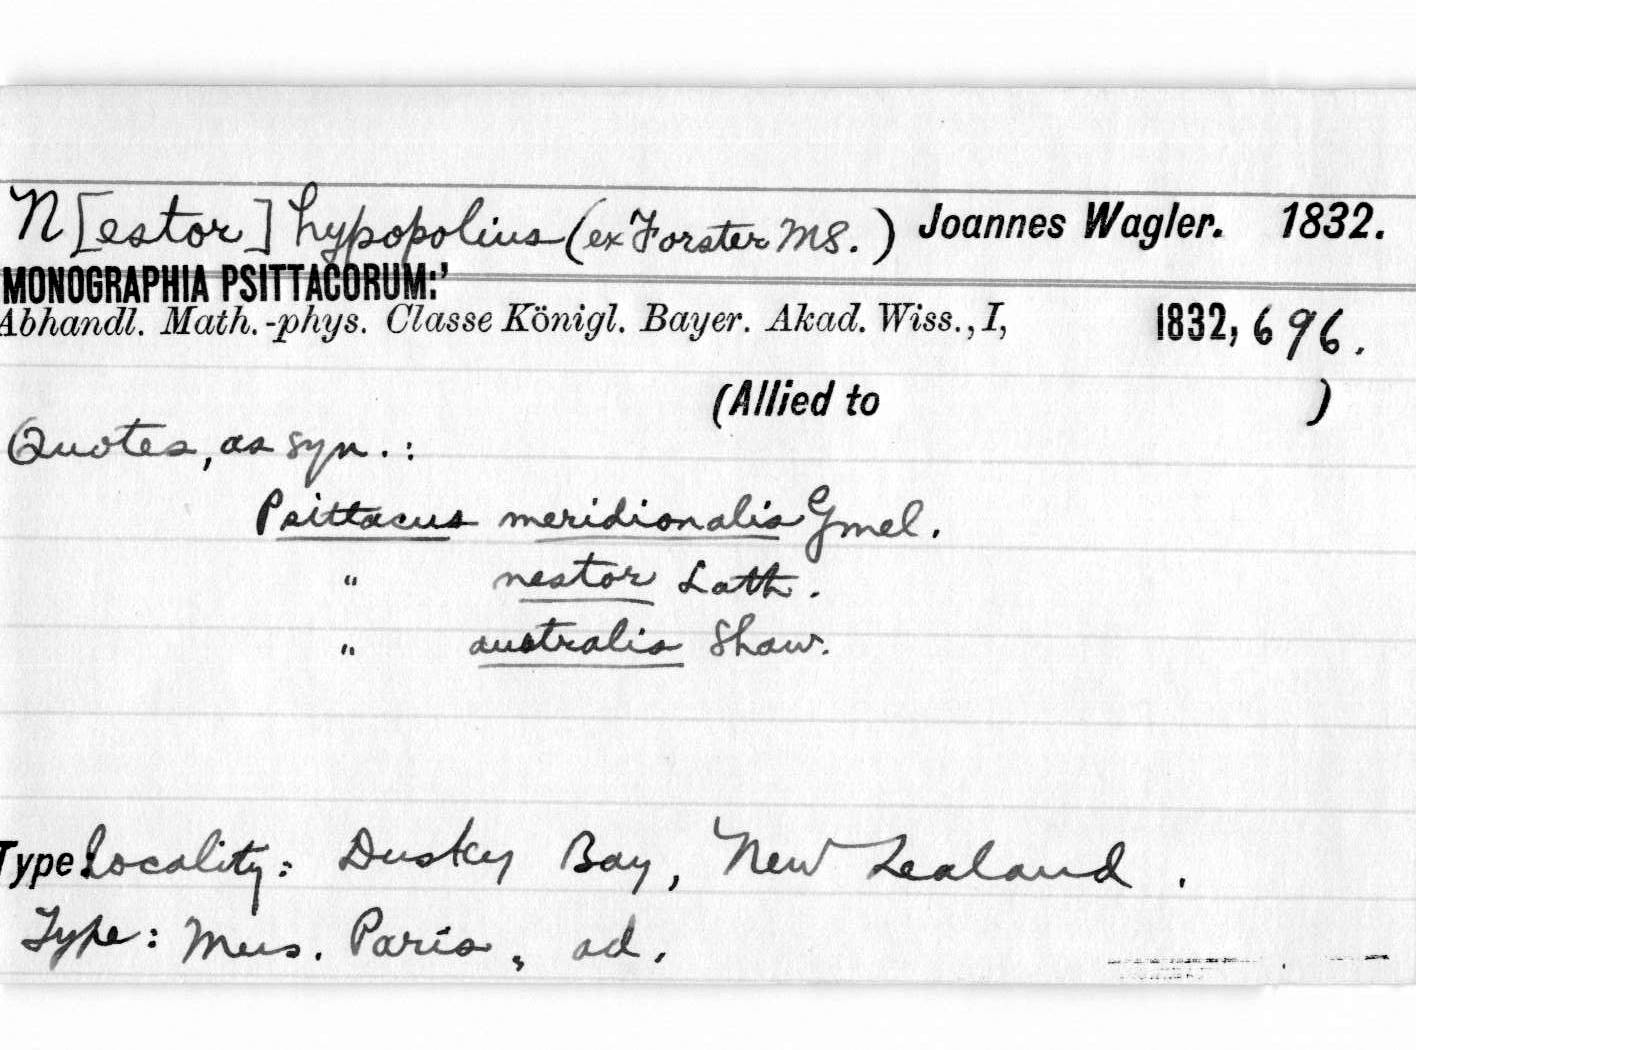 N[estor] hypopolius (ex Forster MS.) Joannes Wagler. 1832.
MONOGRAPHIA PSITTACORUM:'
Abhandl. Math.-phys. Classe Königl. Bayer. Akad. Wiss., I, 1832, 696.
(Allied to )
Quotes, as syn.:
Psittacus meridionalis Gmel.
" nestor Lath.
" australis Shaw.
Type locality: Dusky Bay, New Zealand.
Type: Mus. Paris, ad.